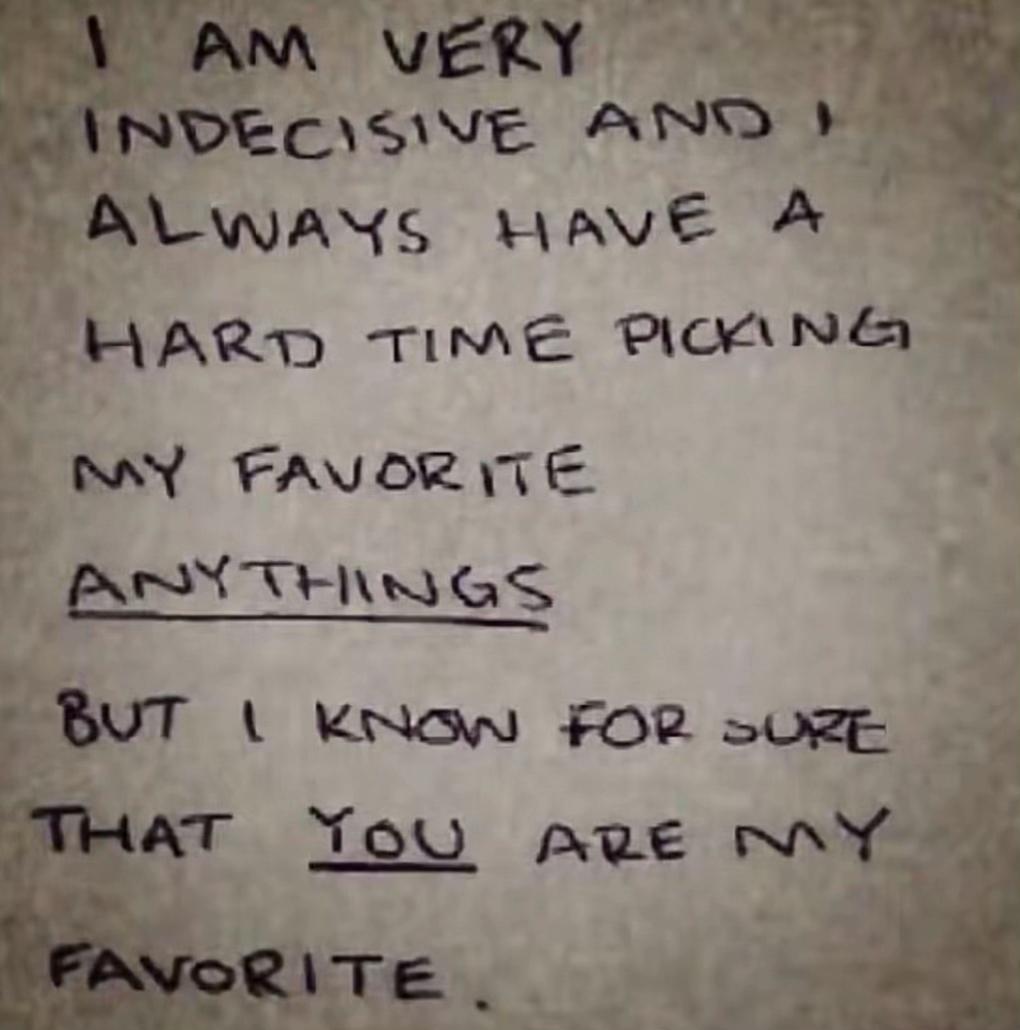 I AM VERY
INDECISIVE AND I
ALWAYS HAVE A
HARD TIME PICKING
MY FAVORITE
ANYTHINGS
BUT I KNOW FOR SURE
THAT YOU ARE MY
FAVORITE.